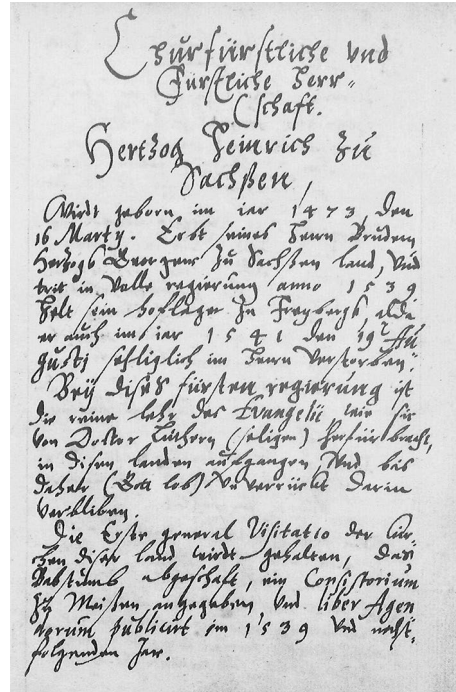 Churfürstliche vnd
Fürstliche Herr-
schafft.
Hertzog Heinrich zu
Sachßen,
Wirdt geborn im iar 1473, den
16 Martij. Erbt seines Herrn Brudern
Hertzogs Georgens zu Sachßen land, vnd
trit in Volle regierung anno 1539
Helt sein hoflager zu Freybergk alda
er auch im iar 1541 den 19t Au
gusti sehliglich im Herrn verstorben.
Beÿ dises fürsten regierung ist
die reine lehr des Evangelii wie sie
von Doctor Luthern (seligen) herfürbracht,
in disen landen aufgangen Vnd bis
daher (Gott lob) vnverrückt darin
verbliben.
Die Erste general Visitatio der Kir-
chen diser land wirdt gehalten, das
Babstumb abgeschaft, ein Consistorium
zu Meißen angegeben, vnd liber Agen
dorum publicirt im 1539 vnd nechst-
folgenden Jar.